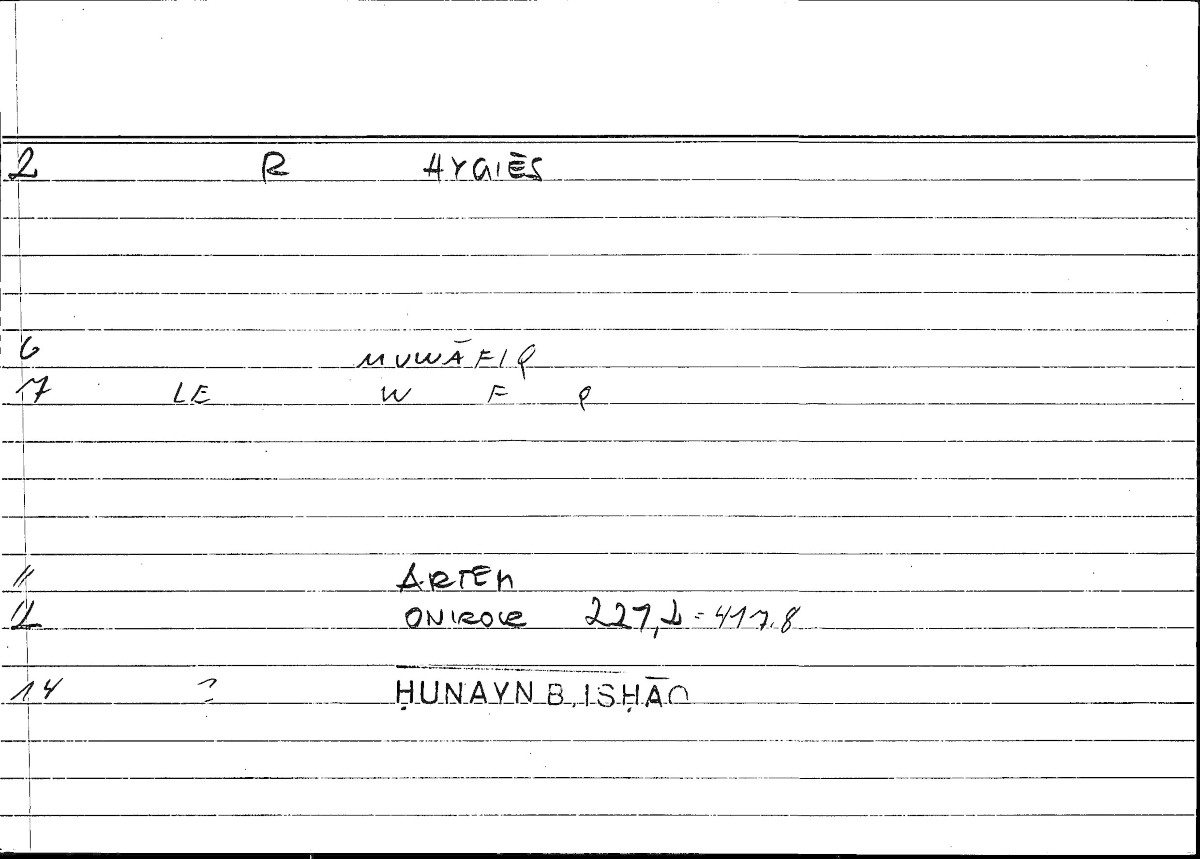 2 R HYGIĒS
6 MUWĀFIQ
7 LE W F Q
11 ARTEM
12 ONIROCR 227,2 = 417.8
14 ? ḤUNAYN B. ISḤĀQ